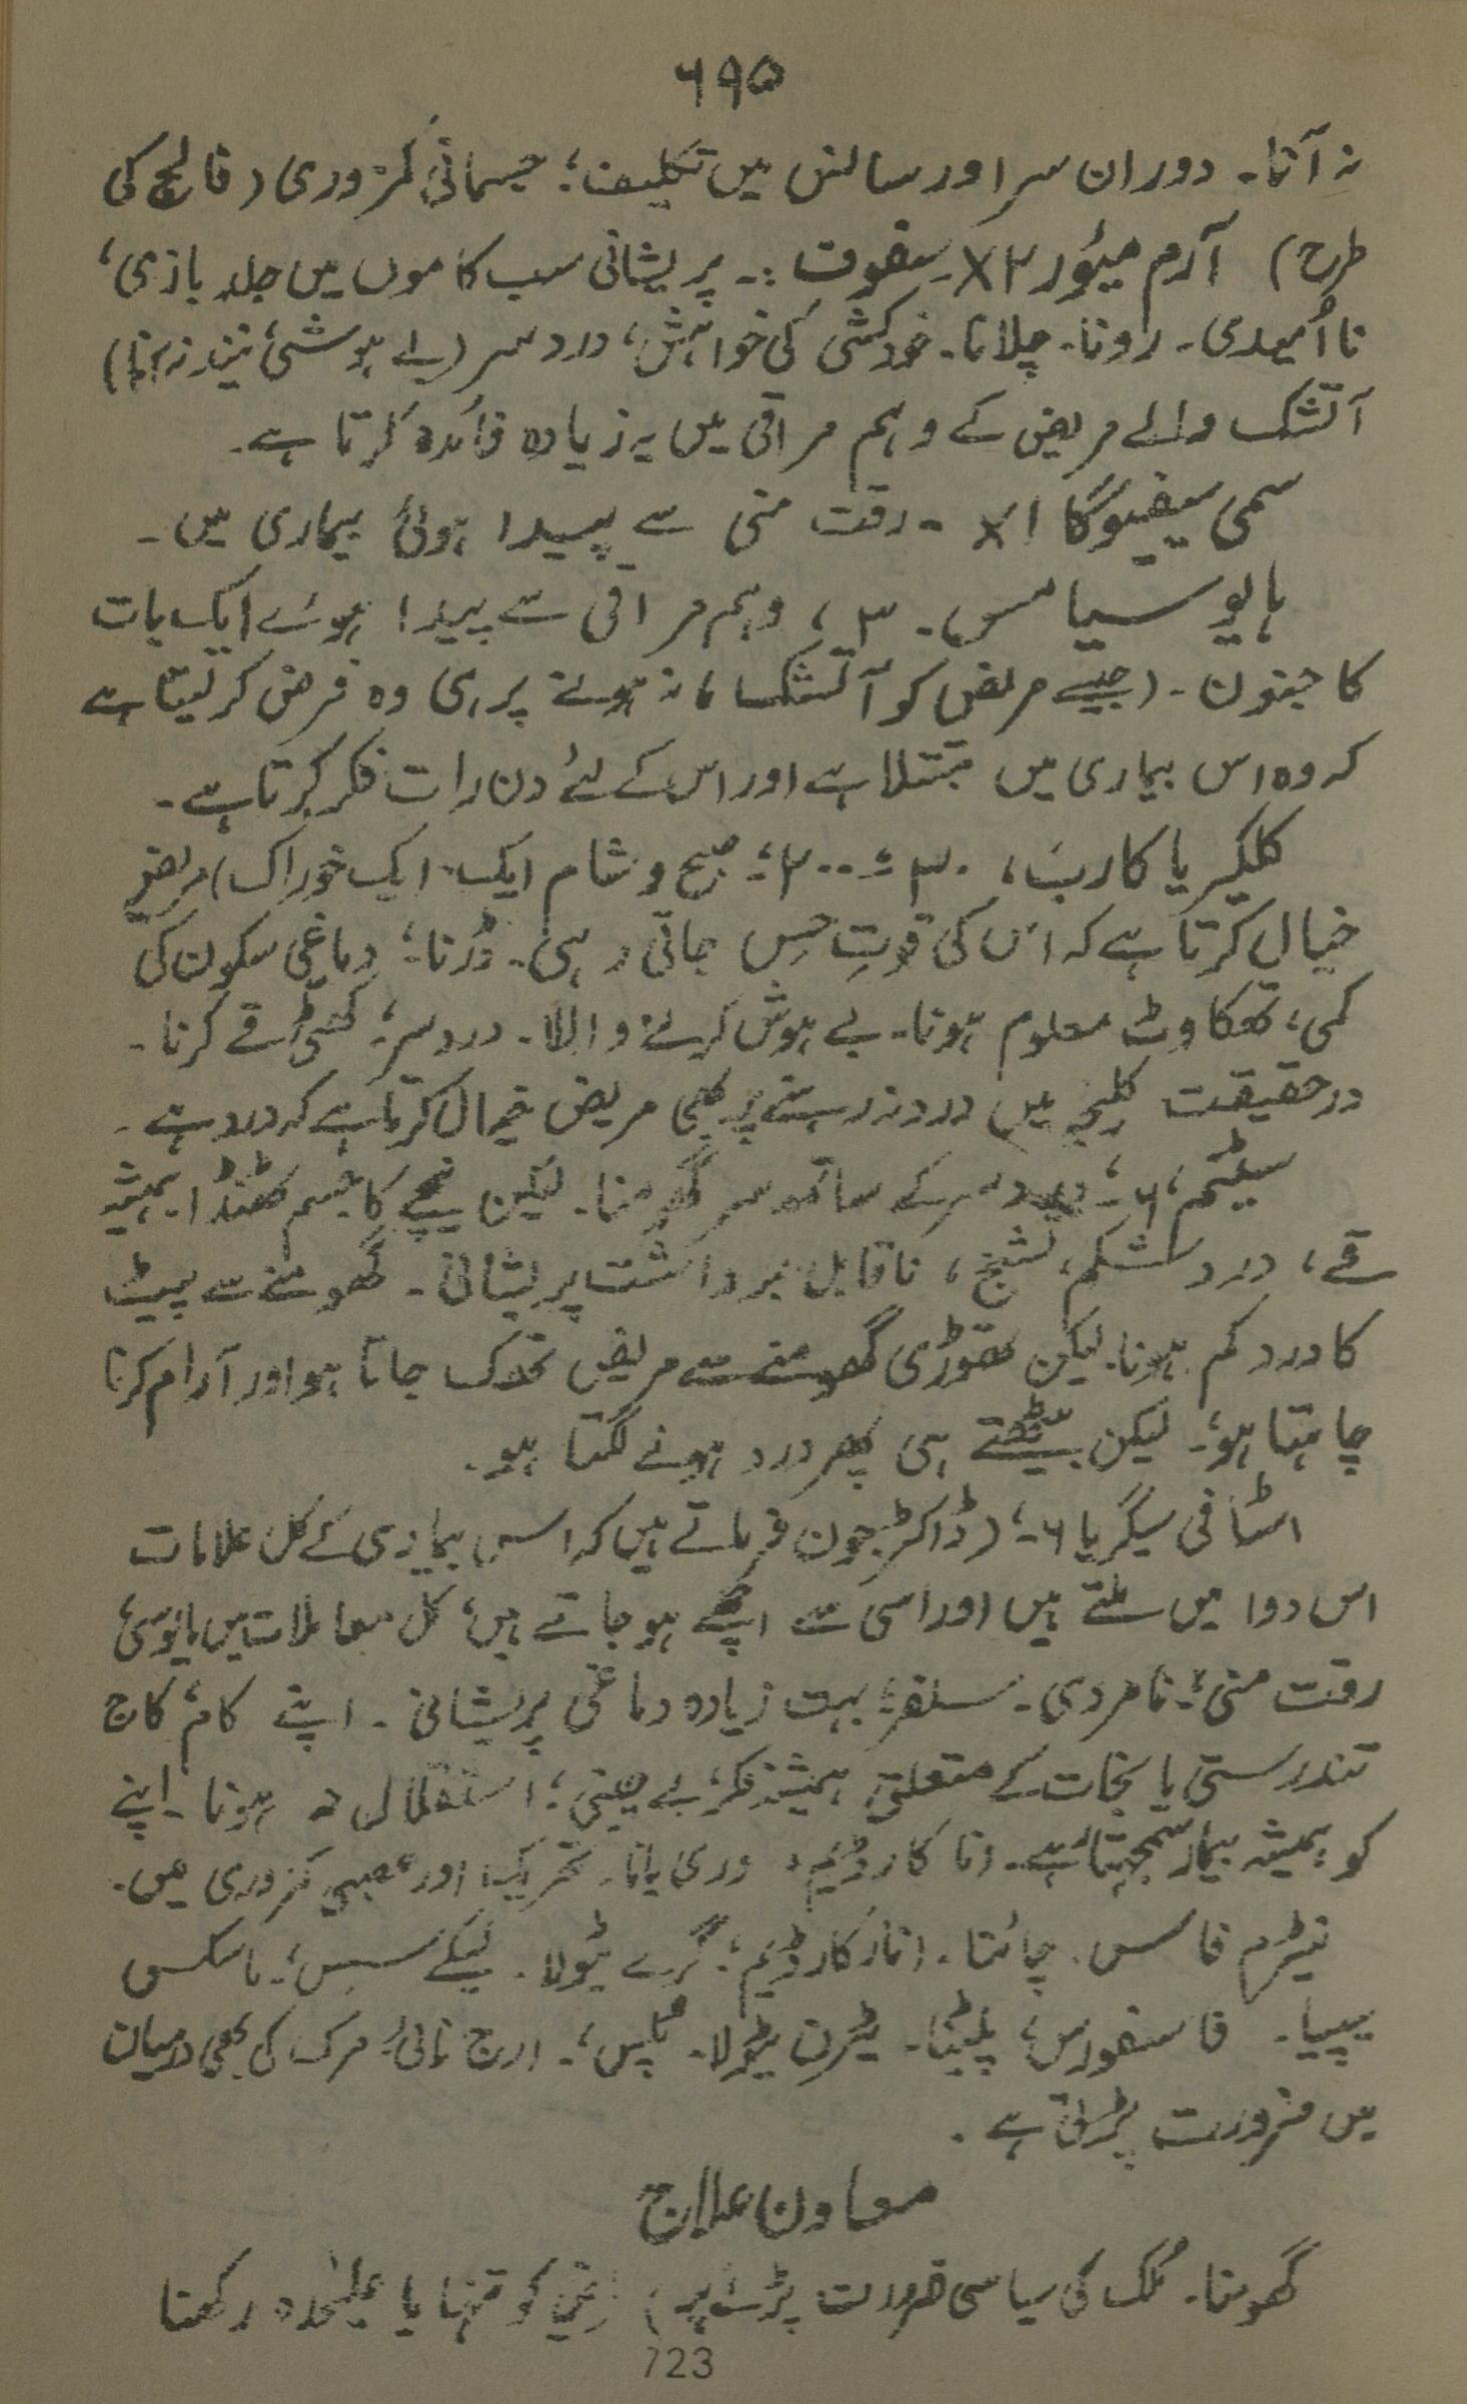 ۶۹۵
نہ آنا۔ دوران سر اور سانس میں تکلیف؛ جسمانی کمزوری (فالج کی
طرح) آرم میئور ۳X سفوف :۔ پریشانی سب کاموں میں جلد بازی،
نا اُمیدی۔ رونا۔ چلانا۔ خودکشی کی خواہش، درد سر (بے ہوشی، نیند نہ آنا)
آتشک والے مریض کے وہم مراقی میں یہ زیادہ فائدہ کرتا ہے۔
سمی سیفیوگا ۱X ۔ رقت منی سے پیدا ہوئی بیماری میں۔
ہایوسیامس۔ ۳، وہم مراقی سے پیدا ہوئے ایک بات
کا جنون۔ (جیسے مریض کو آتشک نہ ہونے پر ہی وہ فرض کر لیتا ہے
کہ وہ اس بیماری میں مبتلا ہے اور اس کے لئے دن رات فکر کرتا ہے۔
کلکیریا کارب، ۳۰؛ ۲۰۰؛ صبح و شام ایک ایک خوراک) مریض
خیال کرتا ہے کہ اس کی قوتِ حِس جاتی رہی۔ ڈرنا؛ دماغی سکون کی
کمی، تھکاوٹ معلوم ہونا۔ بے ہوش کرنے والا۔ درد سر؛ کھٹی قے کرنا۔
درحقیقت کلیجہ میں درد نہ رہنے پر بھی مریض خیال کرتا ہے کہ درد ہے۔
۶؛ درد سر کے ساتھ سر گھومنا۔ لیکن نیچے کا جسم ٹھنڈا ہمیشہ
قے، درد شکم، تشنج، ناقابل برداشت پریشانی۔ گھومنے سے پیٹ
کا درد کم ہونا۔ لیکن تھوڑی گھومنے سے مریض تھک جاتا ہو اور آرام کرنا
چاہتا ہو؛۔ لیکن بیٹھتے ہی پھر درد ہونے لگتا ہو۔
اسٹافی سیگریا ۶؛۔ (ڈاکٹر جون فرماتے ہیں کہ اس بیماری کے کل علامات
اس دوا میں ملتے ہیں اور اسی سے اچھے ہو جاتے ہیں؛ کل معاملات میں مایوسی؛
رقت منی؛۔ نامردی۔ سلفر؛ بہت زیادہ دماغی پریشانی۔ اپنے کام کاج
تندرستی یا نجات کے متعلق ہمیشہ فکر؛ بے چینی؛ استقلال نہ ہونا۔ اپنے
کو ہمیشہ بیمار سمجھتا ہے۔ انا کارڈیم، وری یانا۔ تحریک اور عصبی کمزوری میں۔
نیٹرم فاس۔ چائنا۔ انا کارڈیم؛ گرے ٹیولا۔ لیکے سیس؛۔ ماسکس
سیپیا۔ فاسفورس؛ پلیٹنا۔ ٹیرن ٹیولا۔ پلس؛۔ ارج نائی، مرک کی بھی درمیان
میں ضرورت پڑتی ہے۔
معاون علاج
گھومنا۔ ملک کی سیاسی ضرورت پڑنے پر) کو تنہا یا علیٰحدہ رکھنا
723